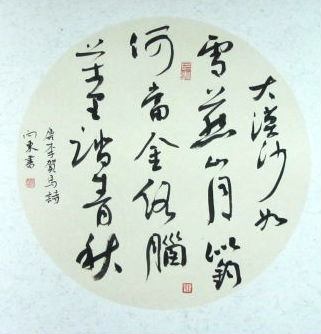 大漠沙如
雪燕山月似鈎
何當金絡腦
萬里踏青秋
唐李賀馬詩
向東書